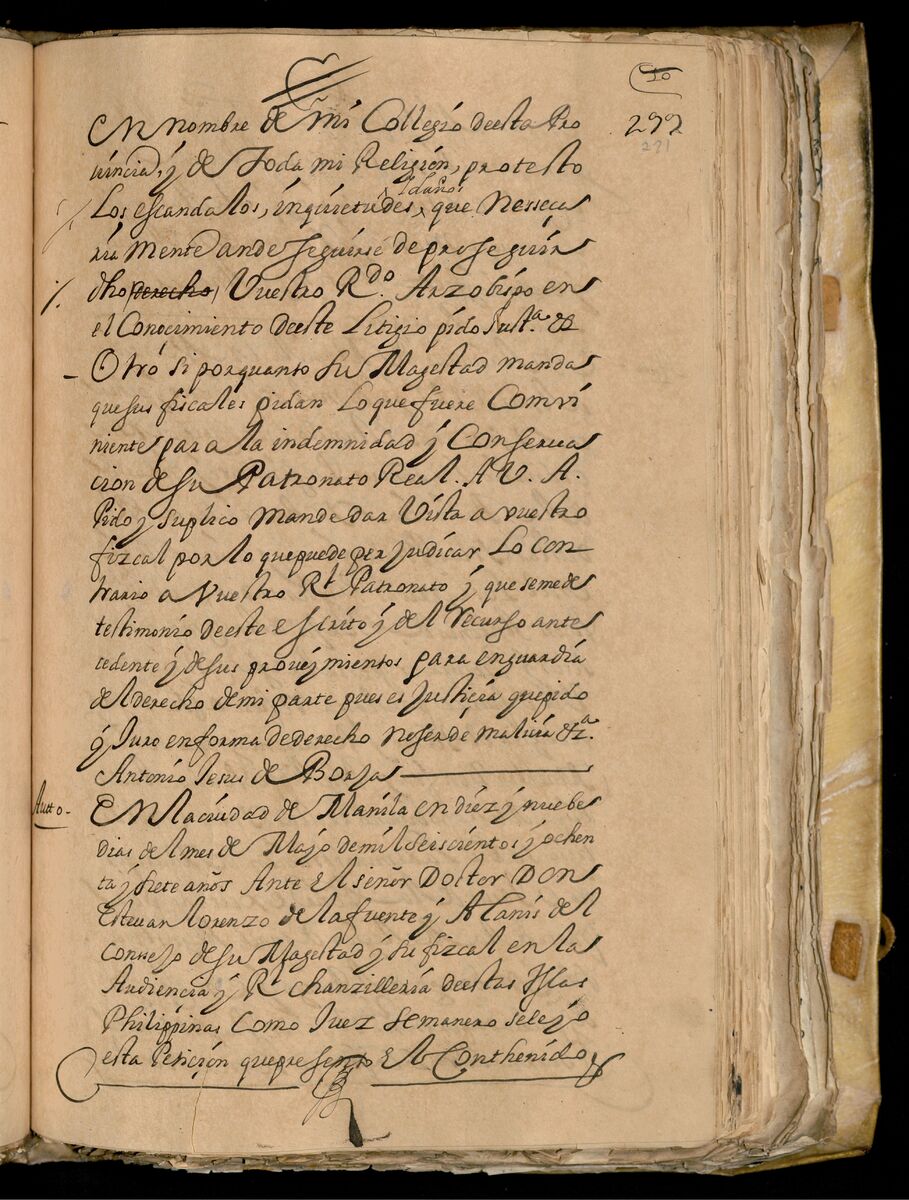 10
299
221
En nombre de mi Collegio deesta Pro
uincia, y de Toda mi Religion, protesto
Los escandalos, inquietudes, y daños que Nessesa
ria Mente ande seguirse de proseguir
dho derecho Vuestro Rdo. Arzobispo en
el Conocimiento deeste Litigio pido Justa. &
Otro si porquanto su Magestad manda
que sus fiscales pidan Lo que fuere Comvi
niente para la indemnidad y Conserua
cion de su Patronato Real. A V. A.
Pido y suplico Mande dar Vista a vuestro
fizcal por lo que puede perjudicar Lo con
trario a Vuestro Rl Patronato y que se me de
testimonio deeste escrito y del recurso ante
cedente y de sus proueymientos para en guardia
del derecho de mi parte pues es Justicia que pido
y Juro en forma de derecho no ser de malicia &a.
Antonio Jesus de Borja
Autto-
En la ciudad de Manila en diez y nuebe
dias del mes de Mayo de mil seiscientos y ochen
ta y siete años Ante El señor Doctor Don
Esteuan lorenzo de la fuente y Alanis del
consejo de su Magestad y su fizcal en la
Audiencia y Rl chanzilleria deestas Yslas
Philippinas Como Juez semanero se leyo
esta Peticion que presento El Conthenido